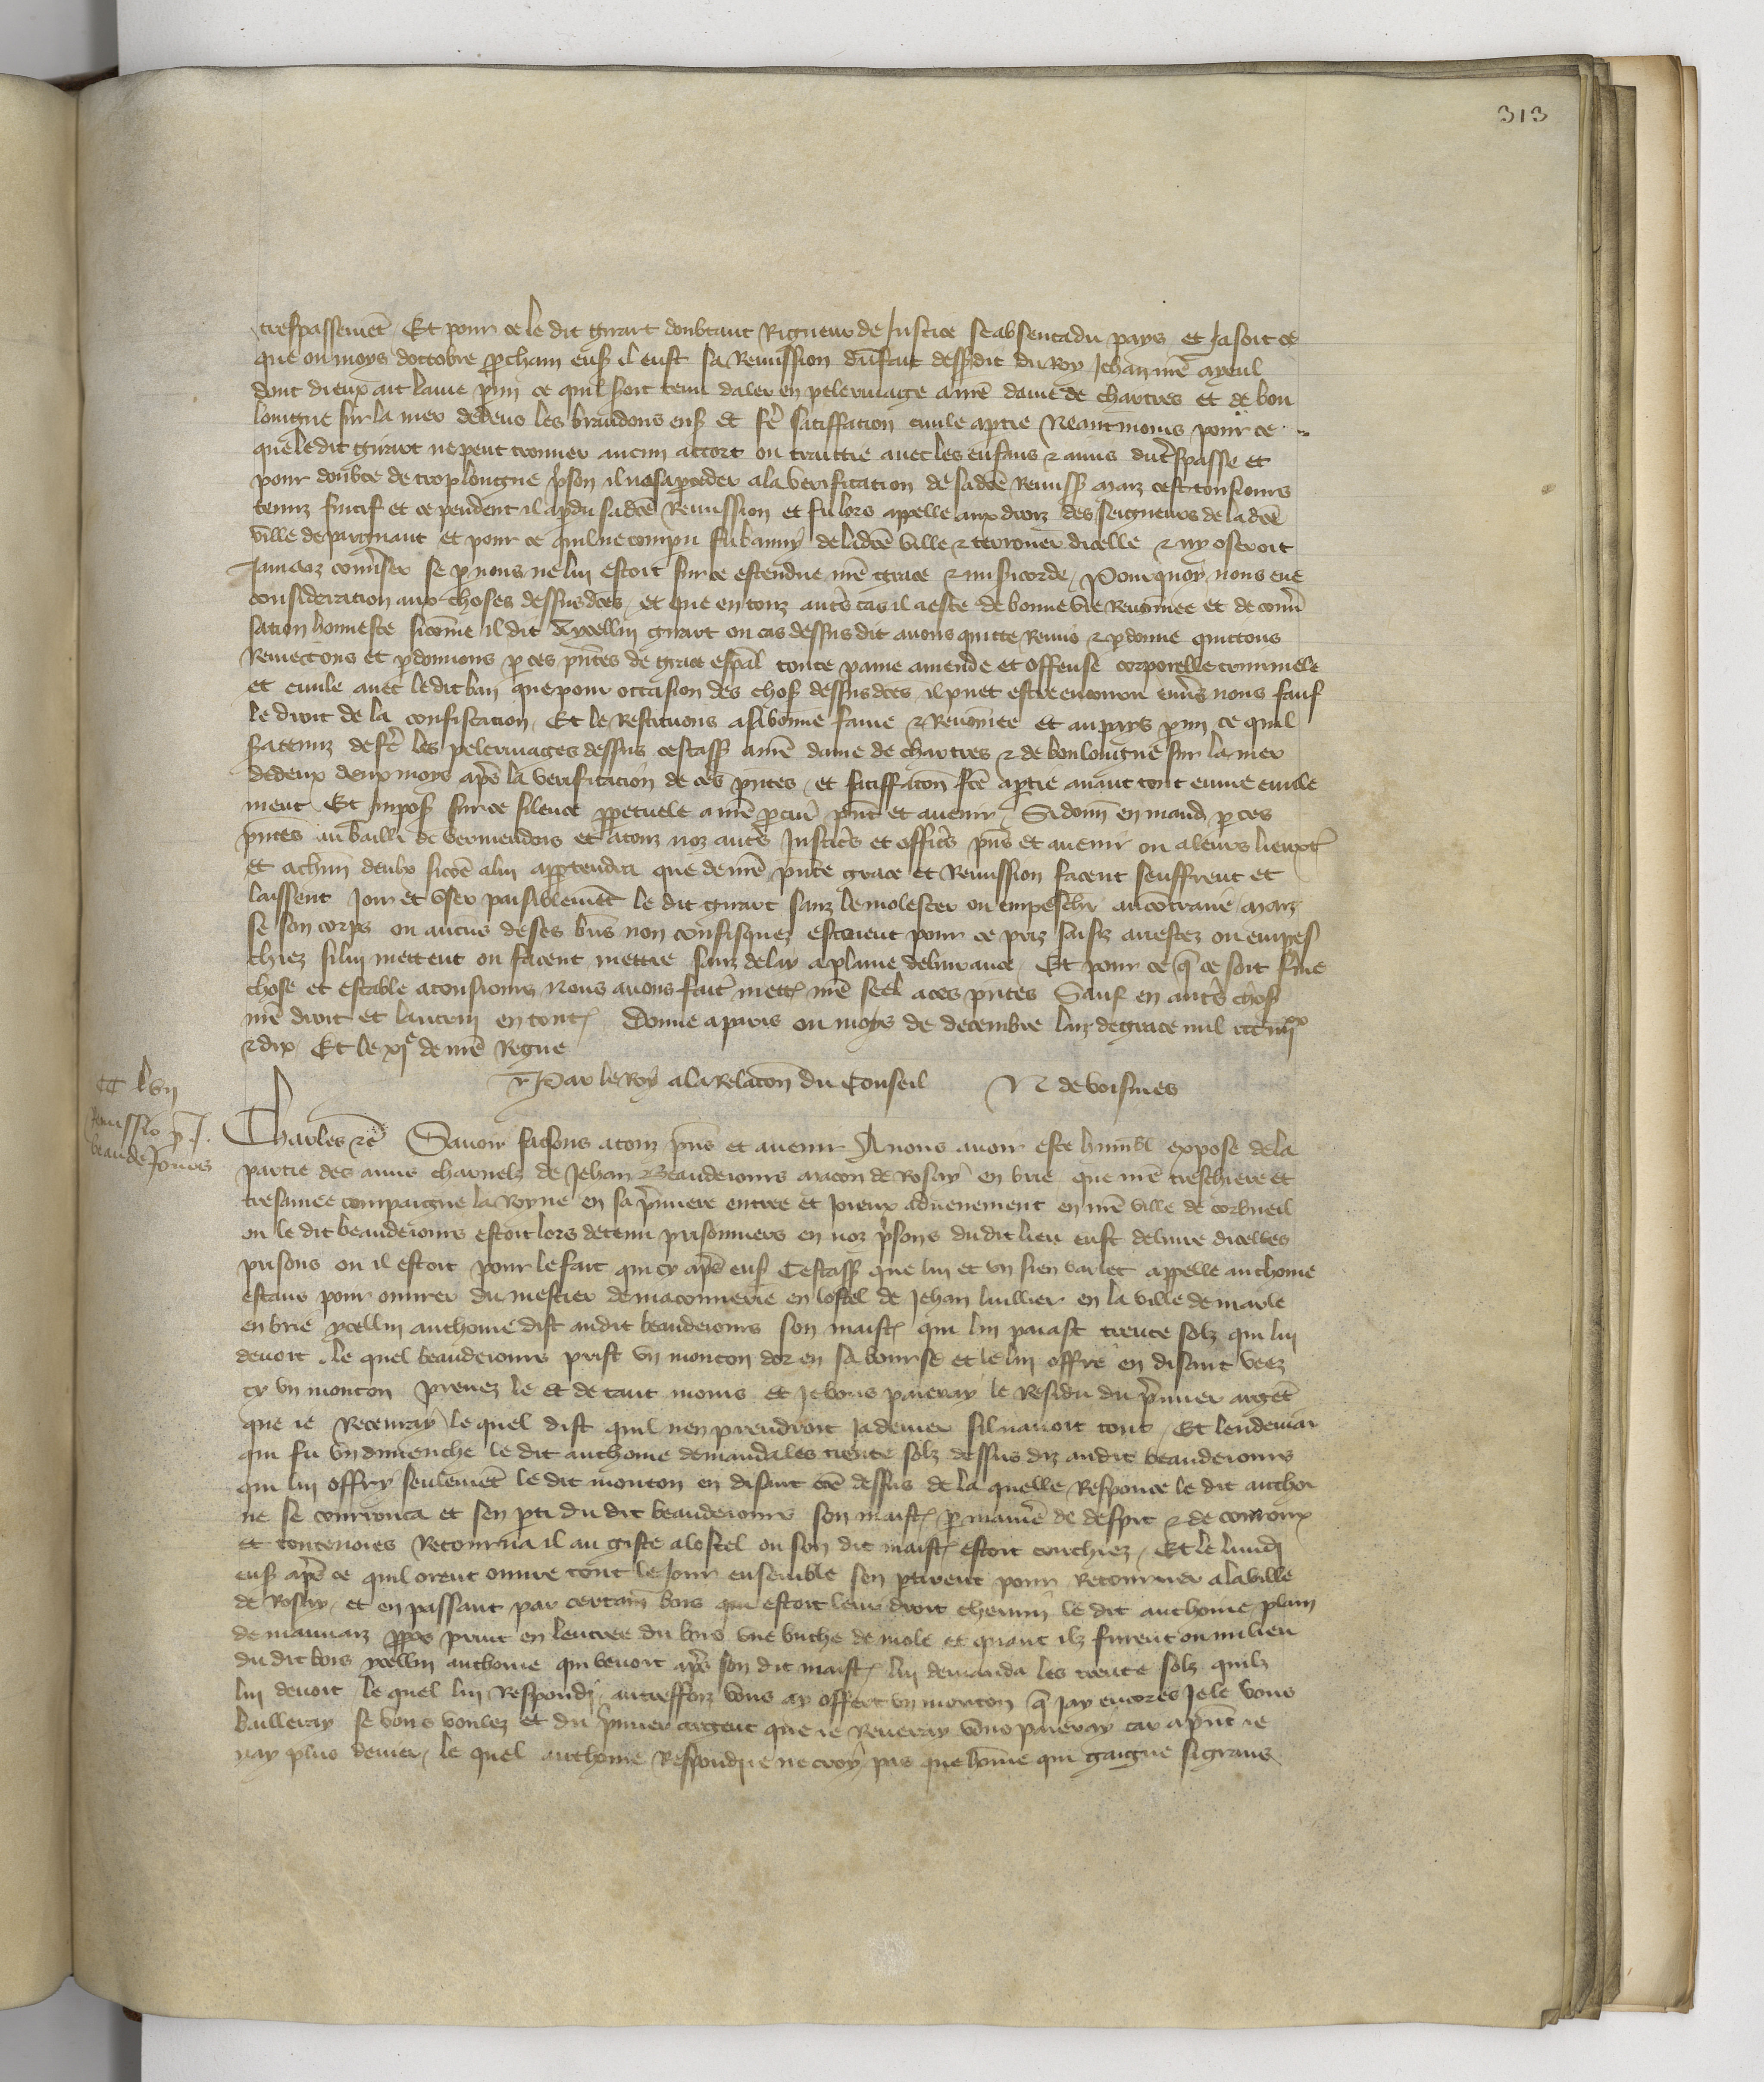 313
trespassemēt Et pour ce le dit girart doubtant Rigueur de Justice se absenta du pays et Jasoit ce
que ou moys doctobre ꝓcham ens il eust sa Remission du fait dessusdit du Roy Jehan nr̄e ayeul
dont dieux ait lame ꝑmi ce quil soit tenu daler en pelerinage a nr̄e dame de chartres et de bou
longne sur la mer dedens les brandons ens et fꝛe satiffacion ciuile a ꝑtie Neantmoins pour ce
que le dit girart ne peut trouuer aucun accort ou traittie auec les enfans ⁊ amis du tr̄spasse et
pour doubte de trop longue p̄son il nosa ꝓceder a la verificacion de sa dc̄e Remiss maiz cest tousiours
tenuz fuitif et ce pendent il a ꝑdu sa dc̄e Remission et fu lors appelle aux droiz des seigneurs de la dc̄e
ville de pargnant et pour ce quil ne compu fu banny de la dc̄e ville ⁊ terrouer dicelle ⁊ ny oseroit
Jamaiz conūser se ꝑ nous ne lui estoit sur ce estendue nr̄e grace ⁊ misicorde Pour quoy nous eue
consideracion aux choses dessus dc̄es et que en touz autr̄s cas il a este de bonne vie Renōmee et de conū
sation honneste sicōme il dit A ycellui girart ou cas dessus dit auons quitte Remis ⁊ ꝑdonne quittons
Remectons et ꝑdonnons ꝑ ces pn̄tes de grace esp̄al toute paine amende et offense corporelle criminele
et ciuile auec le dit ban que pour occasion des chos̄ dessus dc̄es il puet estre encouru enūs nous sauf
le droit de la confiscation Et le Restituons a sa bonne fame ⁊ Renōmee et au pays ꝑmi ce quil
sera tenuz de fꝛe les pelerinages dessus cestass a nr̄e dame de chartres ⁊ de boulongne sur la mer
dedenz deux moys apr̄s la verificacion de ces pn̄tes et satiffacōn fc̄e a ꝑtie auant tout euure ciuile
ment Et Impos̄ sur ce silence ꝑpetuele a nr̄e ꝓcur̄ pn̄t et auenir Si donn̄ en mand ꝑ ces
pn̄tes au bailli de vermendois et a touz noz autr̄s Justic̄s et offic̄s pn̄s et auenir ou a leurs lieuxt̄
et a chūn deulx sicōe a lui appartendra que de nr̄e pn̄te grace et Remission facent seuffrent et
laissent Joir et vser paisiblemēt le dit girart sanz le molester ou empeschr̄ au contraire maiz
se son corps ou aucūs de ses bn̄s non confisquez estoient pour ce priz saisiz arrestez ou empes
chiez si lui mettent ou facent mettre sanz delay a plaine deliurance Et pour ce q̄ ce soit ferme
chose et estable a tousiours Nous auons fait mett̄ nr̄e seel a ces pn̄tes Sauf en autr̄s chos̄
nr̄e droit et lautrui en tout̄ Donne a paris ou moys de decembre lan de grace mil ccc iiijxx
⁊ dix Et le xje de nr̄e Regne
Par le Roy a la Relacōn du Conseil N de voisines
CC lvij
Remissio p̄ J.
beaudeJours
Charles ⁊c̄ Sauoir faisons a touz pn̄s et auenir A nous auoir este humbl̄ expose de la
partie des amis charnelz de Jehan Beaudeiours macon de Rosay en brie que nr̄e treschiere et
tresamee compaigne la Royne en sa p̄miere entree et Joieux aduenement en nr̄e ville de corbueil
ou le dit beaudeiours estoit lors detenu prisonniers en noz p̄sons du dit lieu eust deliure dicelles
prisons ou il estoit pour le fait qui cy apr̄s ens Cestass que lui et vn sien varlet appelle anthoine
estans pour ouurer du mestier de maconnerie en lostel de Jehan luillier en la ville de marle
en brie ycellui anthoine dist audit beaudeiours son maist̄ qui lui paiast trente solz qui lui
deuoit le quel beaudeiours prist vn mouton dor en sa bourse et le lui offre en disant veez
cy vn mouton prenez le et de tant moins et Je vous paieray le Residu du p̄mier argēt
que ie Receuray le quel dist quil nen prendroit Ja denier sil nauoit tout Et lendemai
qui fu vn dimenche le dit anthoine demanda les trente solz dessus diz audit beaudeiours
qui lui offry seulemēt le dit mouton en disant cōe dessus de la quelle Responce le dit anthoi
ne se courrouca et sen ꝑti du dit beaudeiours son maist̄ ꝑ manie̅ de despit ⁊ de courroux
et toutenoies Retourna il au giste a lostel ou son dit maist̄ estoit couchiez Et le lundj
ens apr̄s ce quil orent ouure tout le Jour ensemble sen ꝑtirent pour Retourner a la ville
de Rosay et en passant par certain bois qui estoit leur droit chemin le dit anthoine plain
de mauuaiz ꝓpos print en lentree du bois vne buche de mole et quant ilz furent ou milieu
du dit bois ycellui anthoine qui venoit apr̄s son dit maist̄ lui demanda les trente solz quilz
lui deuoit le quel lui Respondi autreffoiz vous ay offert vn mouton q̄ Jay encores Je le vous
bailleray se vous voulez et du p̄mier argent que ie Receuray vous paieray car a pn̄t ie
nay plus denier le quel anthoine Respondi ie ne croy pas que hōme qui gaigne si grans